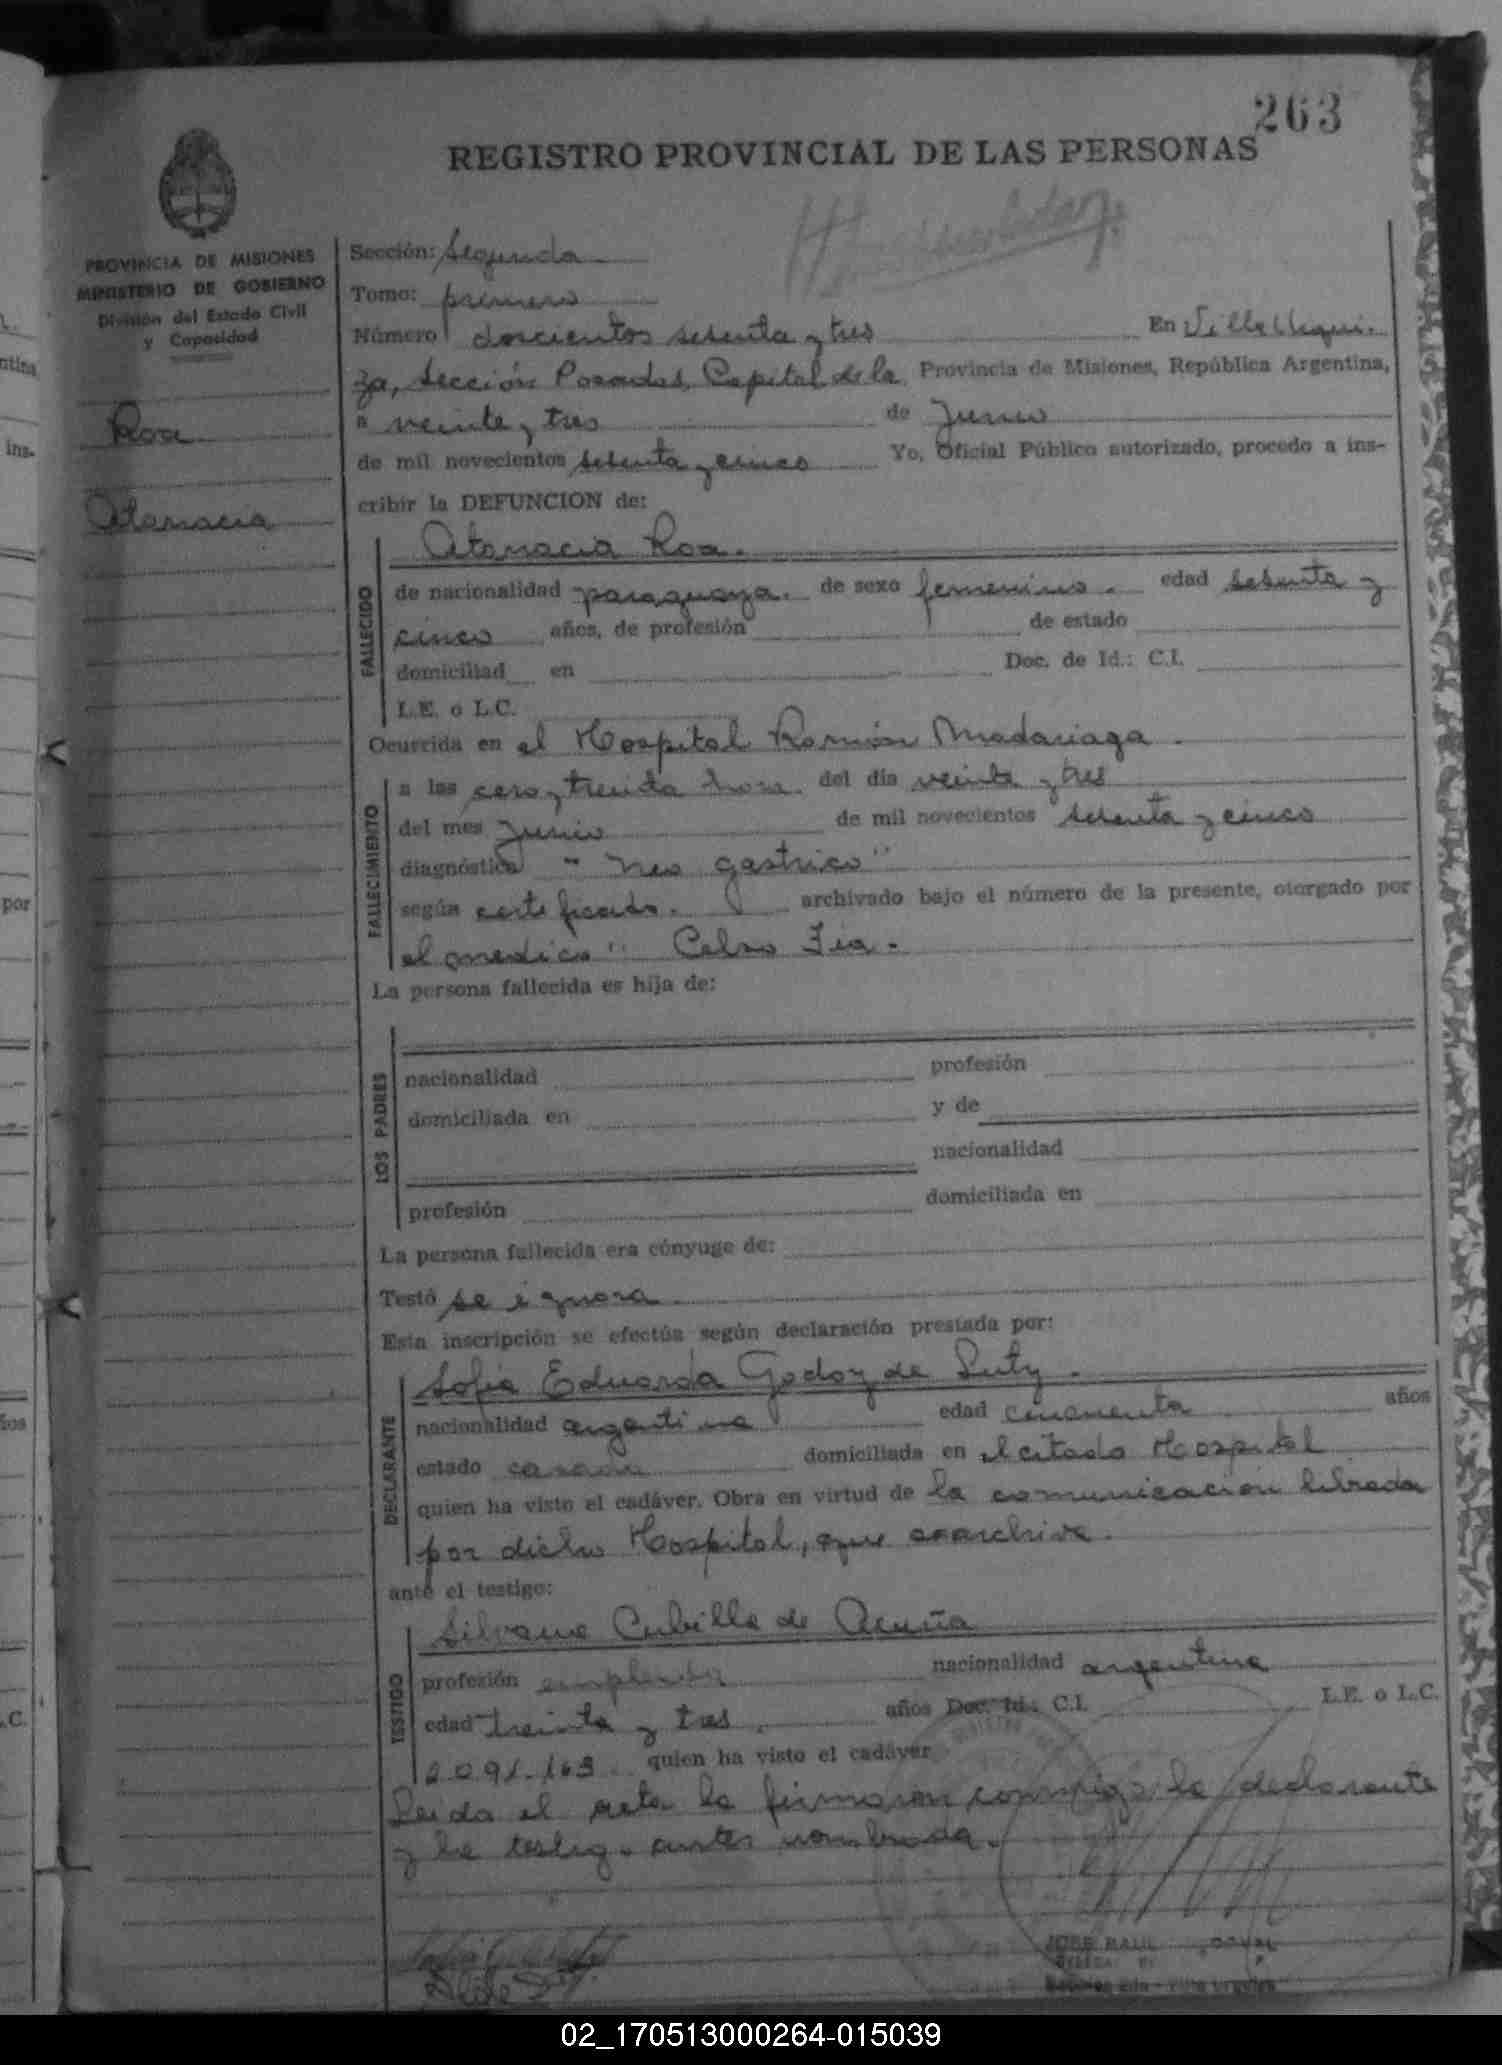 263
REGISTRO PROVINCIAL DE LAS PERSONAS
PROVINCIA DE MISIONES
MINISTERIO DE GOBIERNO
División del Estado Civil
y Capacidad
Roa
Atanacia
Sección: Segunda
Tomo: primero
Número doscientos setenta y tres En Villa Urqui-
za, Sección Posadas, Capital de la Provincia de Misiones, República Argentina,
a veinte y tres de Junio
de mil novecientos setenta y cinco Yo, Oficial Público autorizado, procedo a ins-
cribir la DEFUNCION de:
Atanacia Roa.
FALLECIDO
de nacionalidad paraguaya. de sexo femenino. edad setenta y
cinco años, de profesión de estado
domiciliad en Doc. de Id.: C.I.
L.E. o L.C.
Ocurrida en el Hospital Ramón Madariaga.
FALLECIMIENTO
a las cero y treinta hora. del día veinte y tres
del mes Junio de mil novecientos setenta y cinco
diagnóstico "Neo gastrico"
según certificado. archivado bajo el número de la presente, otorgado por
el medico" Celso Zia.
La persona fallecida es hija de:
LOS PADRES
nacionalidad profesión
domiciliada en y de
nacionalidad
profesión domiciliada en
La persona fallecida era cónyuge de:
Testó se ignora
Esta inscripción se efectúa según declaración prestada por:
DECLARANTE
Sofia Eduarda Godoy de
nacionalidad argentina edad cincuenta años
estado casada domiciliada en el citado Hospital
quien ha visto el cadáver. Obra en virtud de la comunicación librada
por dicho Hospital, que archiva.
ante el testigo:
TESTIGO
Silvana Cubilla de Acuña
profesión empleada nacionalidad argentina
edad treinta y tres. años Doc. Id.: C.I. L.E. o L.C.
2.091.163 quien ha visto el cadáver
Leida el acta la firmaron conmigo la declarante
y la testigo antes nombrada.
JOSE RAUL
02_170513000264-015039